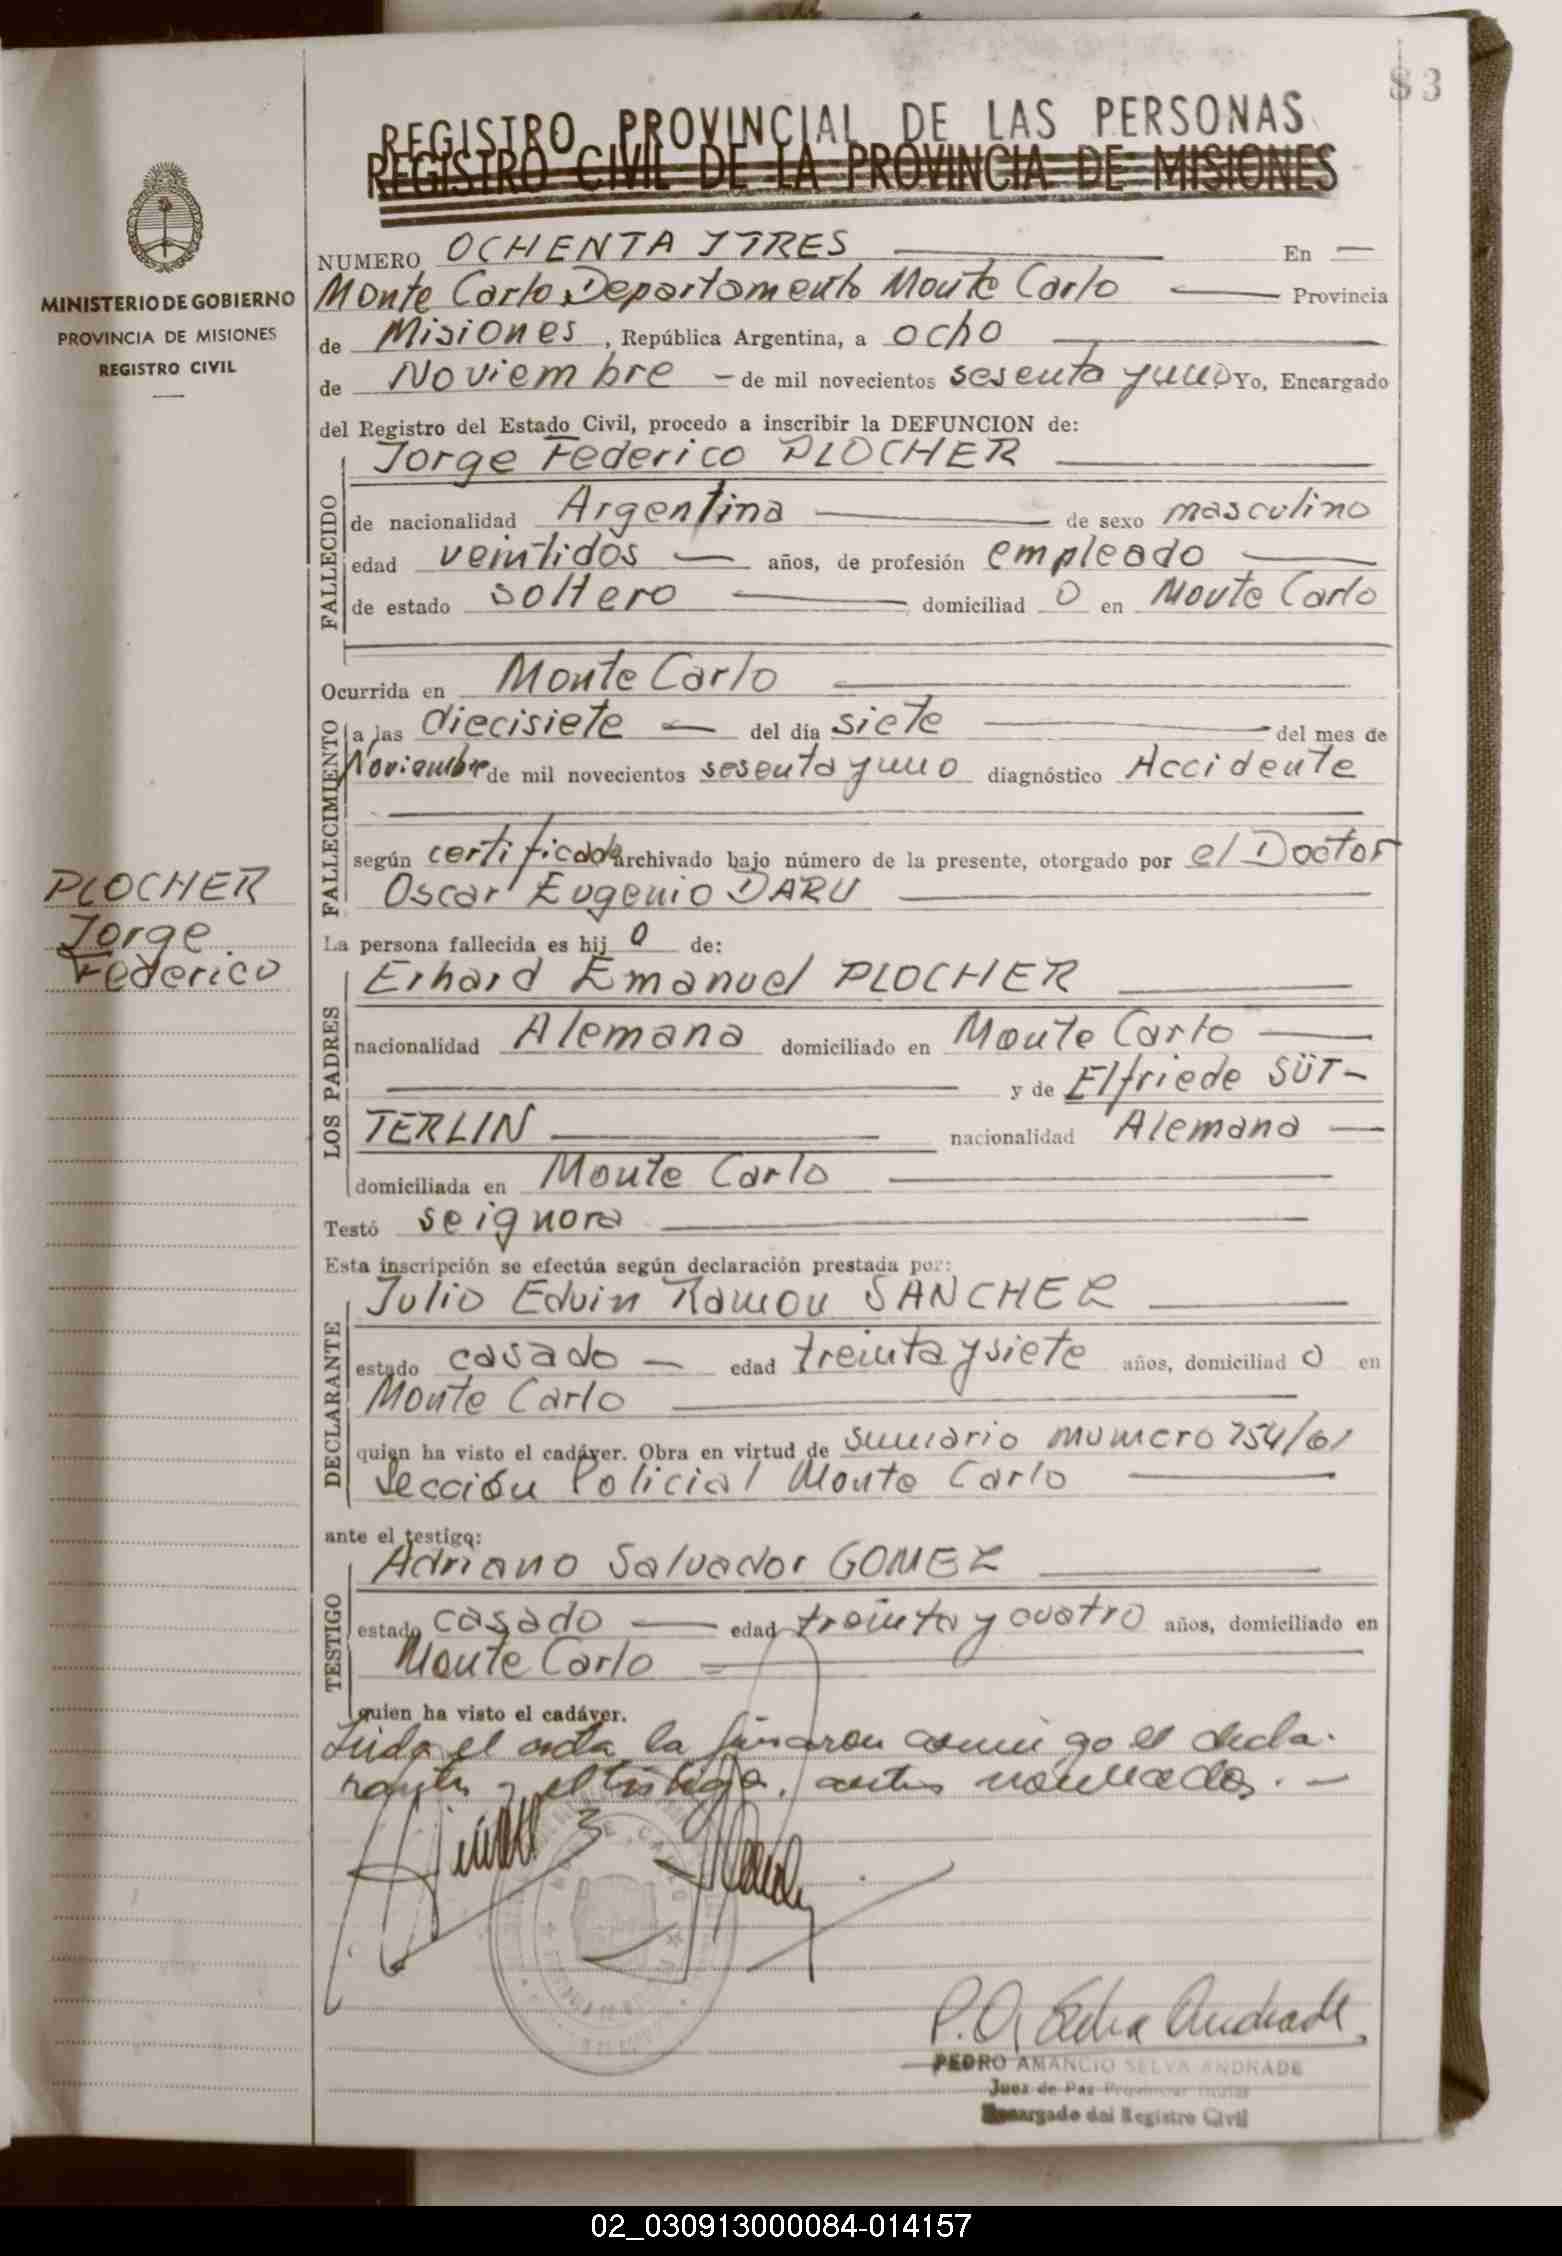 83
REGISTRO PROVINCIAL DE LAS PERSONAS
REGISTRO CIVIL DE LA PROVINCIA DE MISIONES
MINISTERIO DE GOBIERNO
PROVINCIA DE MISIONES
REGISTRO CIVIL
NUMERO OCHENTA Y TRES En
Monte Carlo Departamento Monte Carlo Provincia
de Misiones, República Argentina, a ocho
de Noviembre de mil novecientos sesenta y uno Yo, Encargado
del Registro del Estado Civil, procedo a inscribir la DEFUNCION de:
Jorge Federico PLOCHER
FALLECIDO
de nacionalidad Argentina de sexo masculino
edad veintidos años, de profesión empleado
de estado soltero domiciliad o en Monte Carlo
Ocurrida en Monte Carlo
FALLECIMIENTO
a las diecisiete del día siete del mes de
Noviembre de mil novecientos sesenta y uno diagnóstico Accidente
según certificado archivado bajo número de la presente, otorgado por el Doctor
Oscar Eugenio DARU
PLOCHER
Jorge
Federico
La persona fallecida es hij o de:
Erhard Emanuel PLOCHER
LOS PADRES
nacionalidad Alemana domiciliado en Monte Carlo
y de Elfriede SÜT-
TERLIN nacionalidad Alemana
domiciliada en Monte Carlo
Testó se ignora
Esta inscripción se efectúa según declaración prestada por:
Julio Edvin Ramon SANCHEZ
DECLARANTE
estado casado edad treinta y siete años, domiciliad o en
Monte Carlo
quien ha visto el cadáver. Obra en virtud de sumario numero 754/61
Sección Policial Monte Carlo
ante el testigo:
Adriano Salvador GOMEZ
TESTIGO
estado casado edad treinta y cuatro años, domiciliado en
Monte Carlo
quien ha visto el cadáver.
Leida el acta la firmaron conmigo el decla-
rante y el testigo, antes nombrados.-
P.A. Selva Andrade
PEDRO AMANCIO SELVA ANDRADE
Juez de Paz Provincial Titular
Encargado del Registro Civil
02_030913000084-014157